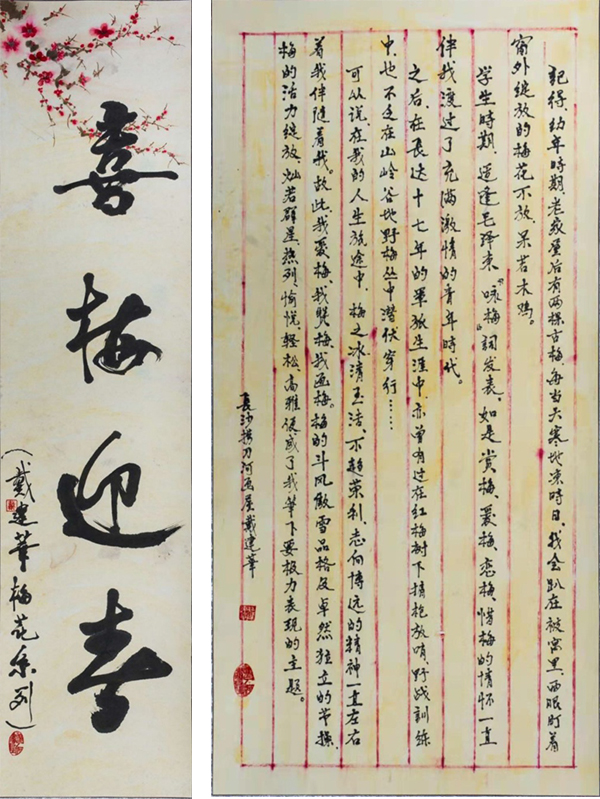 喜梅迎喜
(戴建華梅花系列)
記得,幼年時期,老家屋后有两棵古梅,每当天寒地凍時日,我会趴在被窝里,两眼盯着
窗外绽放的梅花不放,呆若木鸡。
学生時期,适逢毛泽东“咏梅”詞发表,如是赏梅、爱梅、恋梅、惜梅的情怀一直
伴我渡过了充满激情的青年時代。
之后,在長达十七年的軍旅生涯中,亦曾有过在红梅树下持枪放哨,野战訓練
中,也不乏在山岭谷地野梅丛中潜伏穿行……
可以说,在我的人生旅途中,梅之冰清玉洁、不趋荣利、志向博远的精神一直左右
着我伴随着我。故此,我爱梅、我赞梅、我画梅。梅的斗风傲雪品格及卓然独立的节操、
梅的活力绽放、灿若群星、热列、愉悦、轻松、高雅便成了我筆下要极力表现的主题。
長沙捞刀河画屋戴建華